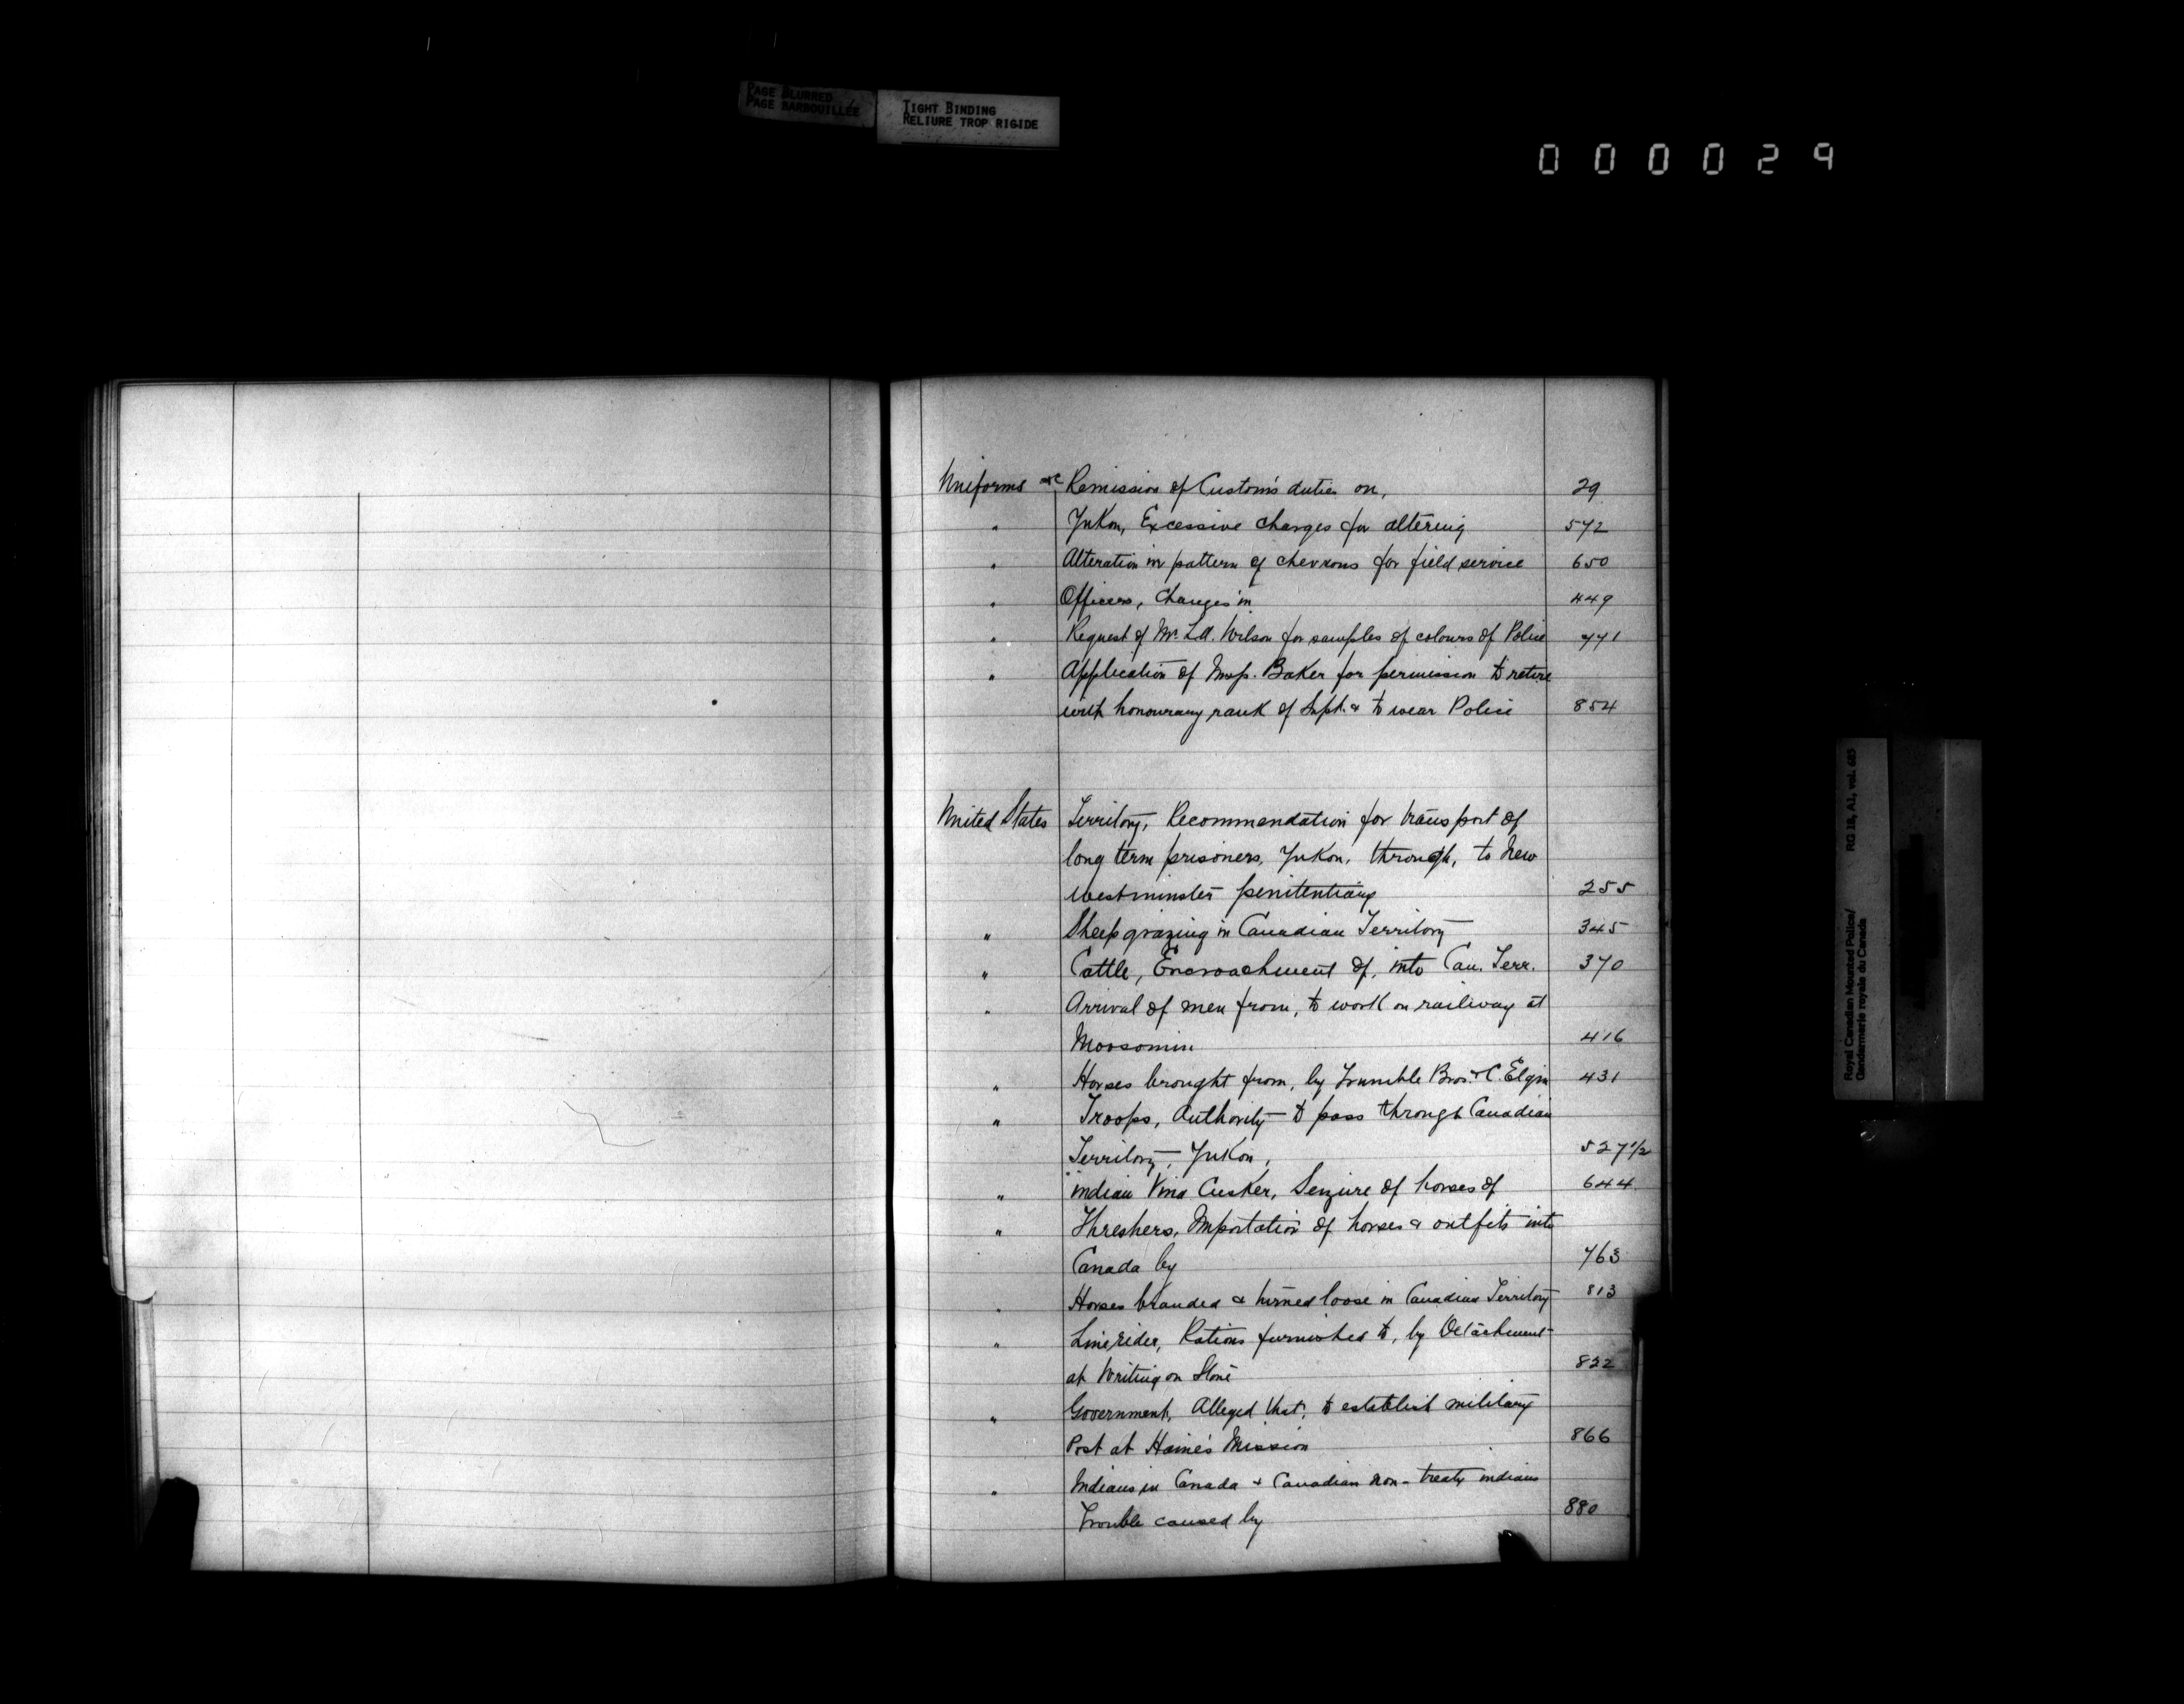 PAGE BLURRED
PAGE BARBOUILLÉE
TIGHT BINDING
RELIURE TROP RIGIDE
000029
Uniforms etc Remission of Custom's duties on, 29
" Yukon, Excessive charges for altering 572
" Alteration in pattern of chevrons for field service 650
" Officers, Changes in 449
" Request of Mr. Wilson for samples of colours of Police 771
" Application of Insp. Baker for permission to retire
with honourary rank of Supt. & to wear Police 854
United States Territory, Recommendation for transport of
long term prisoners, Yukon, through, to New
Westminster penitentiary 255
" Sheep grazing in Canadian Territory 345
" Cattle, Encroachment of, into Can. Terr. 370
" Arrival of men from, to work on railway at
Moosomin 416
" Horses brought from, by Trumble Bros. & C. Elgin 431
" Troops, Authority to pass through Canadian
Territory, Yukon, 527 1/2
" indian Cusker, Seizure of horses of 644
" Threshers, Importation of horses & outfits into
Canada by 763
" Horses branded & turned loose in Canadian Territory 813
" Line rider, Rations furnished to, by Detachment
at Writing on Stone 822
" Government, Alleged that, to establish military
Post at Haine's Mission 866
" Indians in Canada & Canadian non-treaty indians
Trouble caused by 880
Royal Canadian Mounted Police/ RG 18, A1, vol. 685
Gendarmerie royale du Canada